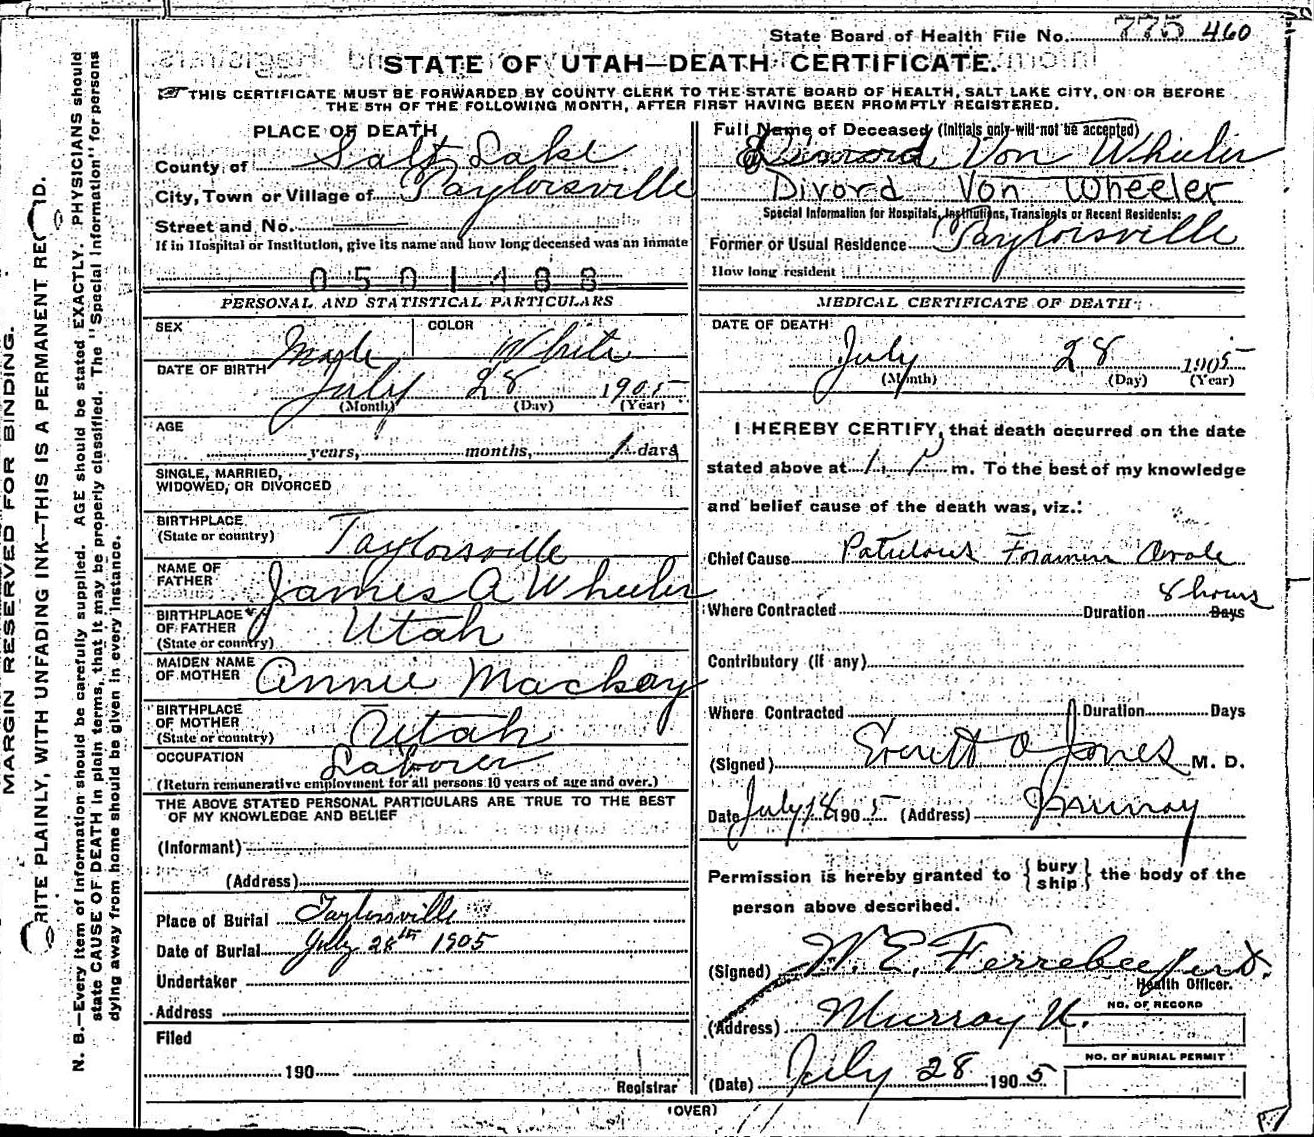 State Board of Health File No. 775 460
STATE OF UTAH—DEATH CERTIFICATE.
THIS CERTIFICATE MUST BE FORWARDED BY COUNTY CLERK TO THE STATE BOARD OF HEALTH, SALT LAKE CITY, ON OR BEFORE
THE 5TH OF THE FOLLOWING MONTH, AFTER FIRST HAVING BEEN PROMPTLY REGISTERED.
PLACE OF DEATH
County of Salt Lake
City, Town or Village of Taylorsville
Street and No.
If in Hospital or Institution, give its name and how long deceased was an inmate
0501488
PERSONAL AND STATISTICAL PARTICULARS
SEX Male COLOR White
DATE OF BIRTH July 28 1905
(Month) (Day) (Year)
AGE
years, months, 1 days
SINGLE, MARRIED,
WIDOWED, OR DIVORCED
BIRTHPLACE
(State or country) Taylorsville
NAME OF
FATHER James A Wheeler
BIRTHPLACE
OF FATHER
(State or country) Utah
MAIDEN NAME
OF MOTHER Annie Mackay
BIRTHPLACE
OF MOTHER
(State or country) Utah
OCCUPATION Laborer
(Return remunerative employment for all persons 10 years of age and over.)
THE ABOVE STATED PERSONAL PARTICULARS ARE TRUE TO THE BEST
OF MY KNOWLEDGE AND BELIEF
(Informant)
(Address)
Place of Burial Taylorsville
Date of Burial July 28th 1905
Undertaker
Address
Filed
190
Registrar
Full Name of Deceased (Initials only will not be accepted)
Von Wheeler
Divord Von Wheeler
Special Information for Hospitals, Institutions, Transients or Recent Residents:
Former or Usual Residence Taylorsville
How long resident
MEDICAL CERTIFICATE OF DEATH
DATE OF DEATH
July 28 1905
(Month) (Day) (Year)
I HEREBY CERTIFY, that death occurred on the date
stated above at 1 P m. To the best of my knowledge
and belief cause of the death was, viz.:
Chief Cause Patulous Foramen Ovale
8 hours
Where Contracted Duration Days
Contributory (if any)
Where Contracted Duration Days
(Signed) Everett O Jones M. D.
Date July 1905 (Address) Murray
Permission is hereby granted to { bury ship } the body of the
person above described.
(Signed) W. E. Ferrebee
Health Officer.
NO. OF RECORD
(Address) Murray U.
NO. OF BURIAL PERMIT
(Date) July 28 1905
(OVER)
MARGIN RESERVED FOR BINDING.
RITE PLAINLY, WITH UNFADING INK—THIS IS A PERMANENT
N. B.—Every item of information should be carefully supplied. AGE should be stated EXACTLY. PHYSICIANS should
state CAUSE OF DEATH in plain terms, that it may be properly classified. The "Special Information" for persons
dying away from home should be given in every instance.